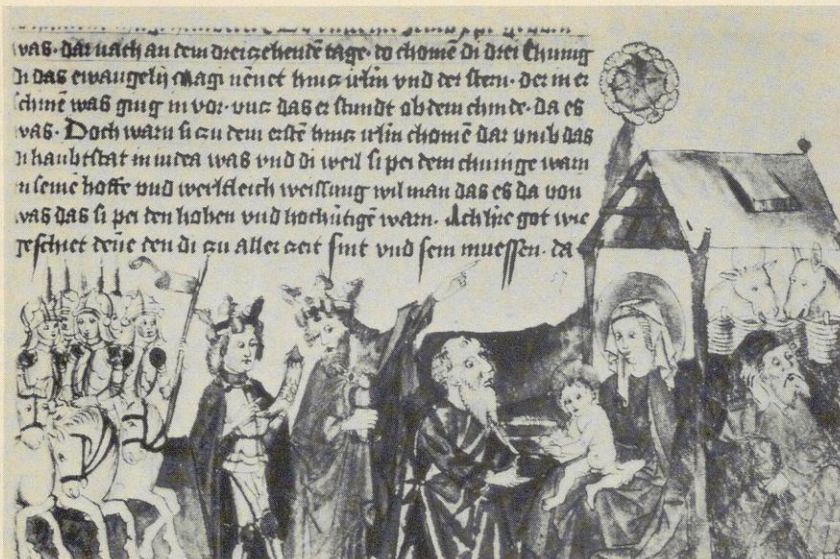 was· dar nach an dem dreizehentē tage· do chomē di drei Chunig
di das ewangelij Magi nēnet hincz irlm vnd der stern· der in er
schinē was ging in vor· vncz das er stundt ob dem chinde· da es
was· Doch warn si zu dem erstē hincz irlm chomē dar vmb das
di haubtstat in iudea was vnd di weil si pei dem chunige warn
in seinē hoffe vnd werltleich weisung wil man das es da von
was das si pei den hohen vnd hochūtigē warn· Ach hīe got wie
geschiet den den di zu aller zeit sint vnd sein muessen· da